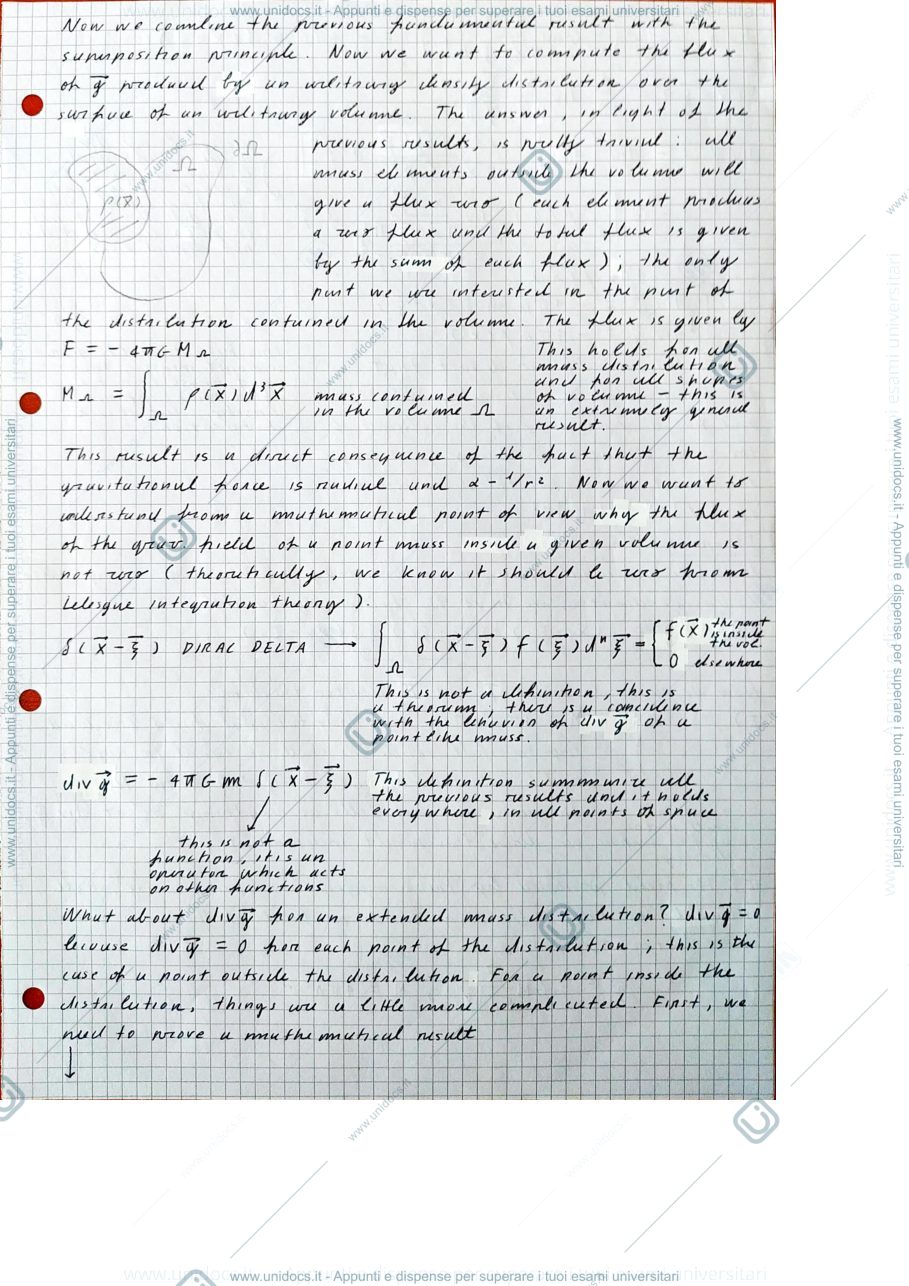 www.unidocs.it - Appunti e dispense per superare i tuoi esami universitari
Now we combine the previous fundamental result with the
superposition principle. Now we want to compute the flux
of g⃗ produced by an arbitrary density distribution over the
surface of an arbitrary volume. The answer, in light of the
previous results, is pretty trivial : all
mass elements outside the volume will
give a flux zero (each element produces
a zero flux and the total flux is given
by the sum of each flux) ; the only
part we are interested in the part of
Ω ∂Ω
ρ(x⃗)
the distribution contained in the volume. The flux is given by
F = - 4πG M_Ω
M_Ω = ∫_Ω ρ(x⃗) d³x⃗ mass contained
in the volume Ω
This holds for all
mass distribution
and for all shapes
of volume - this is
an extremely general
result.
This result is a direct consequence of the fact that the
gravitational force is radial and α - 1/r². Now we want to
understand from a mathematical point of view why the flux
of the grav. field of a point mass inside a given volume is
not zero (theoretically, we know it should be zero from
Lebesgue integration theory).
δ(x⃗ - ξ⃗) DIRAC DELTA → ∫_Ω δ(x⃗ - ξ⃗) f(ξ⃗) dⁿξ⃗ = { f(x⃗) the point is inside the vol.
0 elsewhere
This is not a definition, this is
a theorem ; there is a coincidence
with the behavior of div g⃗ of a
pointlike mass.
div g⃗ = - 4πG m δ(x⃗ - ξ⃗) This definition summarize all
the previous results and it holds
everywhere, in all points of space
this is not a
function, it is an
operator which acts
on other functions
What about div g⃗ for an extended mass distribution? div g⃗ = 0
because div g⃗ = 0 for each point of the distribution ; this is the
case of a point outside the distribution. For a point inside the
distribution, things are a little more complicated. First, we
need to prove a mathematical result
↓
www.unidocs.it - Appunti e dispense per superare i tuoi esami universitari